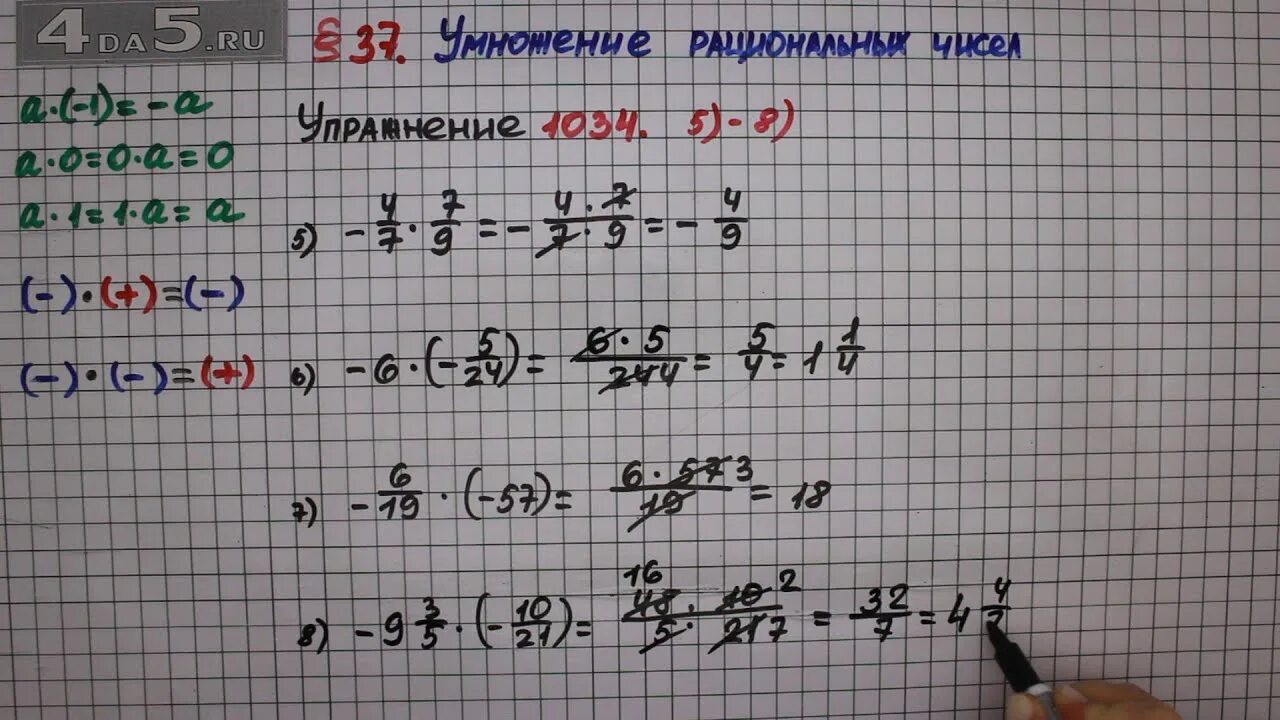 4DA5.RU
§ 37. Умножение рациональных чисел
a·(-1)=-a
a·0=0·a=0
a·1=1·a=a
(-)·(+)=(-)
(-)·(-)=(+)
Упражнение 1034. 5)-8)
5) -4/7 · 7/9 = - 4·7/7·9 = - 4/9
6) -6·(-5/24)= 6·5/24 4 = 5/4 = 1 1/4
7) -6/19 · (-57)= 6·57 3/19 = 18
8) -9 3/5 · (-10/21)= 16 48·10 2/5·21 7 = 32/7 = 4 4/7